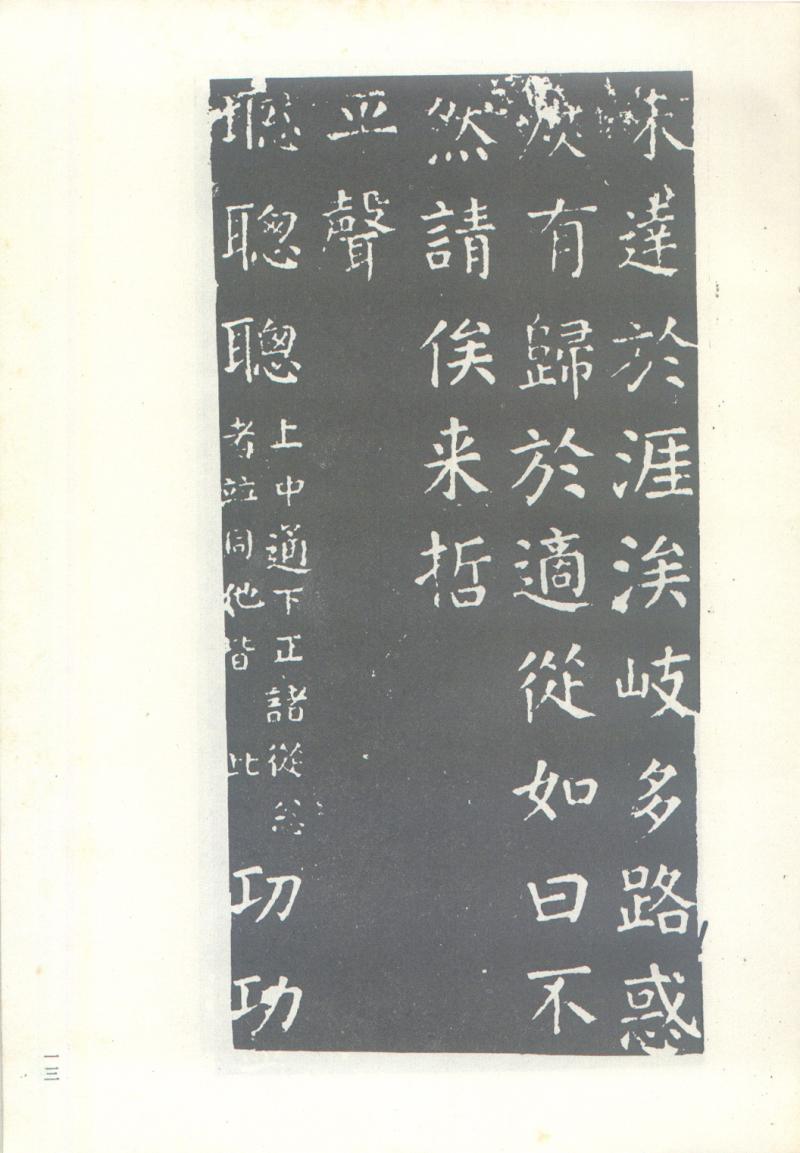 未達於涯涘岐多路惑
庶有歸於適從如曰不
然請俟来哲
平聲
聦聰聰上中通下正諸從忩
者並同他皆此功功
一三